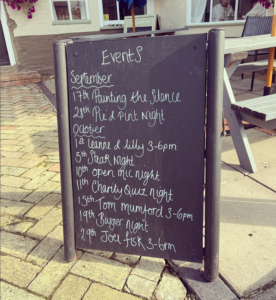 Events
September
17th Painting the Silence
28th Pie & Pint Night
October
1st Leanne & Lilly 3-6pm
5th Steak Night
10th open mic night
11th Charity Quiz night
15th Tom Mumford 3-6pm
19th Burger Night
29th Joel Fisk 3-6pm